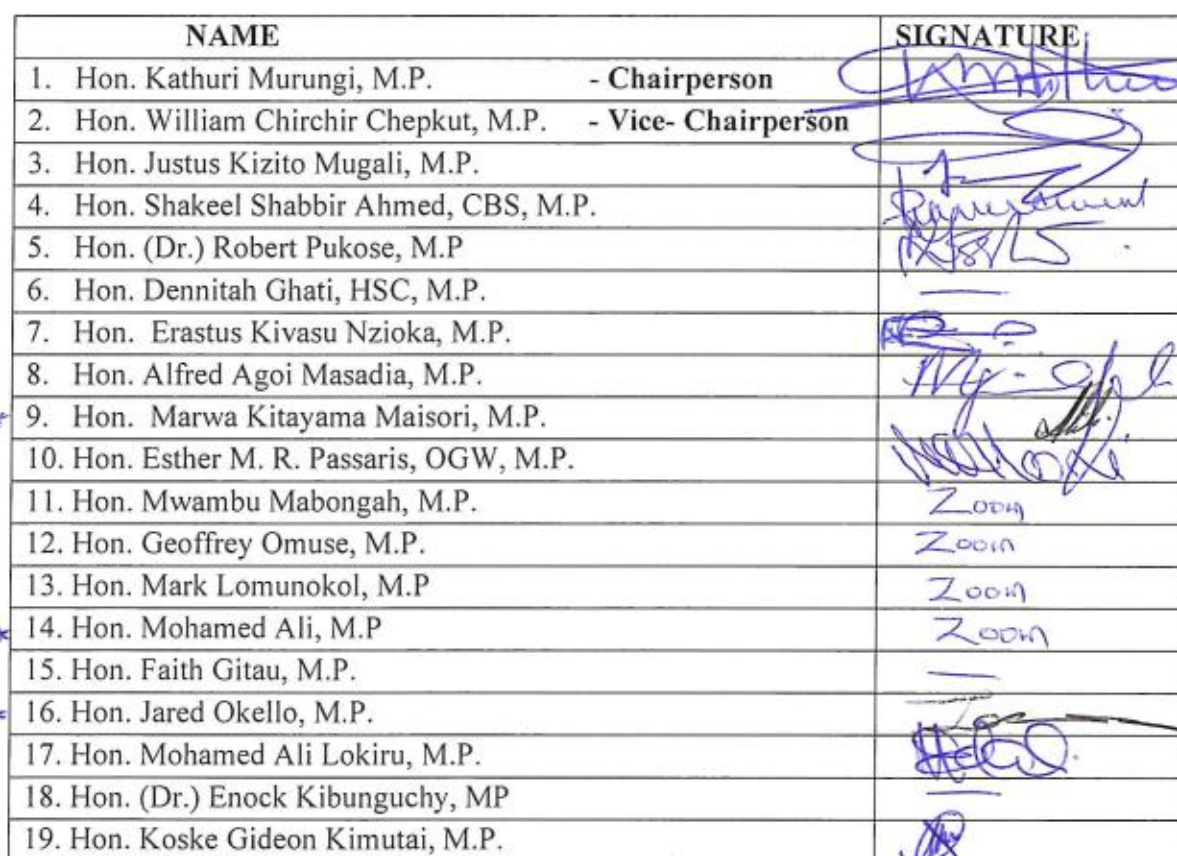 NAME SIGNATURE
1. Hon. Kathuri Murungi, M.P. - Chairperson
2. Hon. William Chirchir Chepkut, M.P. - Vice- Chairperson
3. Hon. Justus Kizito Mugali, M.P.
4. Hon. Shakeel Shabbir Ahmed, CBS, M.P.
5. Hon. (Dr.) Robert Pukose, M.P
6. Hon. Dennitah Ghati, HSC, M.P. —
7. Hon. Erastus Kivasu Nzioka, M.P.
8. Hon. Alfred Agoi Masadia, M.P.
9. Hon. Marwa Kitayama Maisori, M.P.
10. Hon. Esther M. R. Passaris, OGW, M.P.
11. Hon. Mwambu Mabongah, M.P. Zoom
12. Hon. Geoffrey Omuse, M.P. Zoom
13. Hon. Mark Lomunokol, M.P Zoom
14. Hon. Mohamed Ali, M.P Zoom
15. Hon. Faith Gitau, M.P. —
16. Hon. Jared Okello, M.P.
17. Hon. Mohamed Ali Lokiru, M.P.
18. Hon. (Dr.) Enock Kibunguchy, MP —
19. Hon. Koske Gideon Kimutai, M.P.